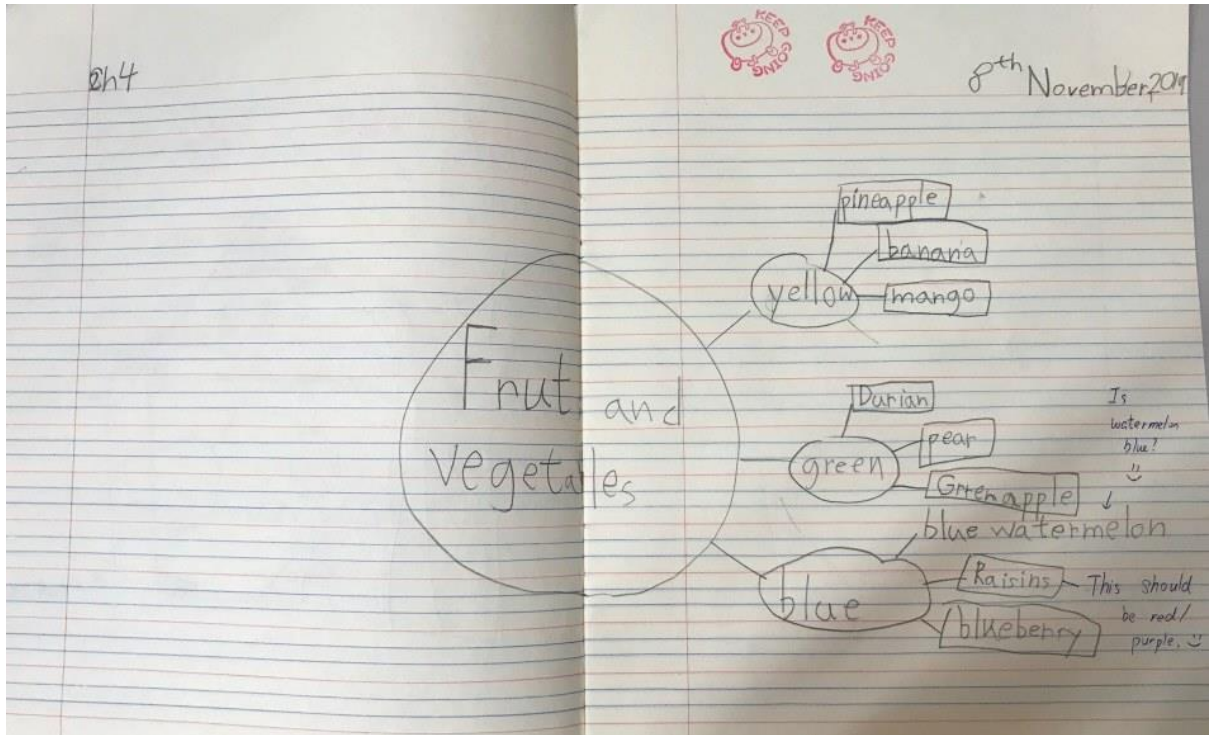 Ch4
KEEP GOING
KEEP GOING
8th November, 2019
Frut and
vegetables
yellow
pineapple
banana
mango
green
Durian
pear
Green apple
blue
blue watermelon
Raisins
blueberry
Is
watermelon
blue?
This should
be red/
purple.